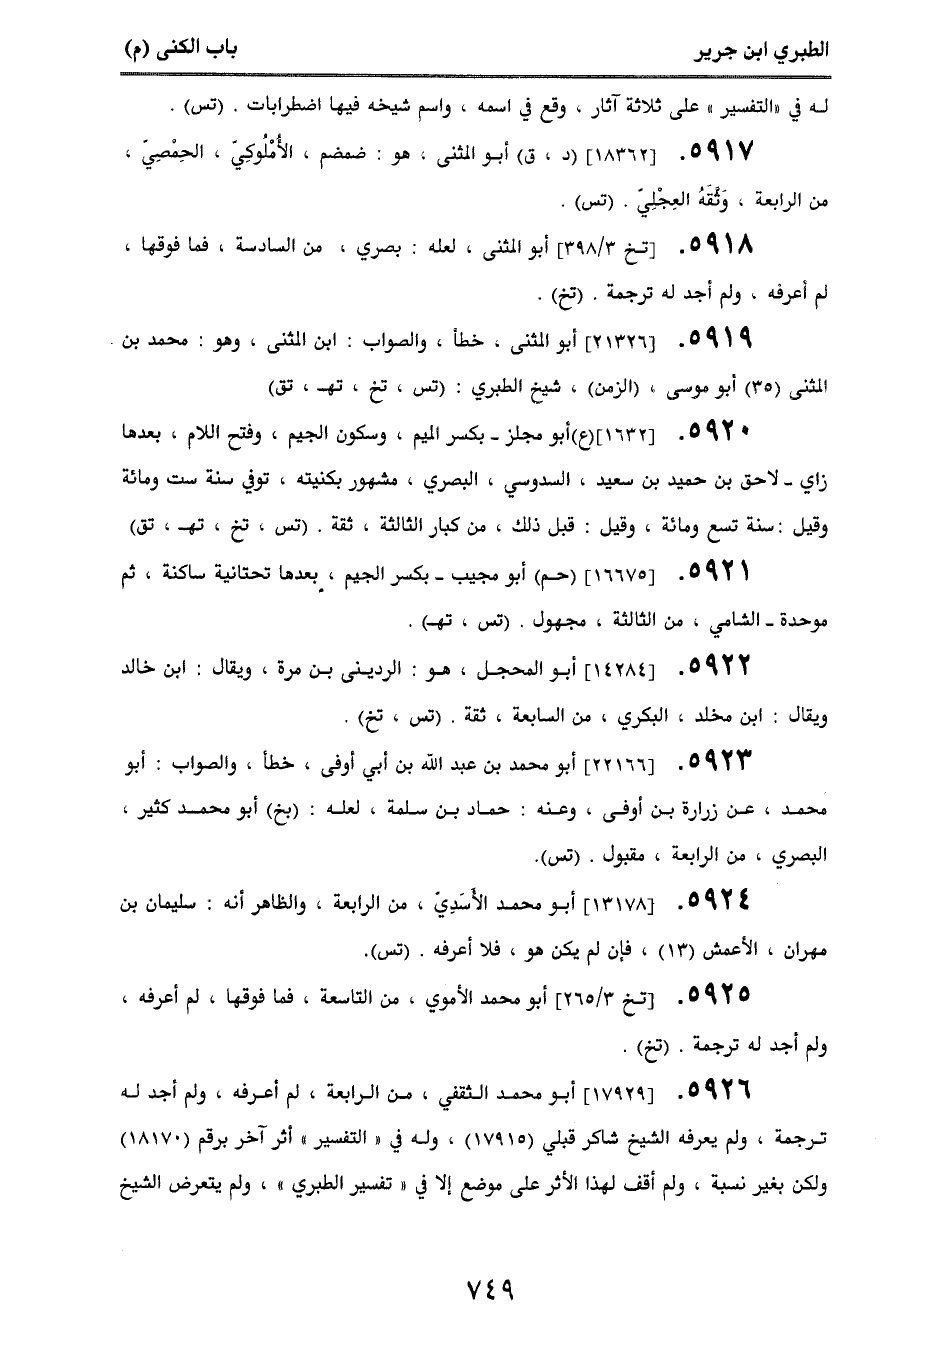 الطبري ابن جرير
باب الكنى (م)
لـه في «التفسير» على ثلاثة آثار ، وقع في اسمه ، واسم شيخه فيها اضطرابات . (تس) .
٥٩١٧. [١٨٣٦٢] (د ، ق) أبـو المثنى ، هو : ضمضم ، الأُمْلُوكِيّ ، الحِمْصِيّ ،
من الرابعة ، وَثَّقَهُ العِجْلِيّ . (تس) .
٥٩١٨. [تـخ ٣٩٨/٣] أبو المثنى ، لعله : بصري ، من السادسة ، فما فوقها ،
لم أعرفه ، ولم أجد له ترجمة . (تخ) .
٥٩١٩. [٢١٣٢٦] أبو المثنى ، خطأ ، والصواب : ابن المثنى ، وهو : محمد بن
المثنى (٣٥) أبو موسى ، (الزمن) ، شيخ الطبري : (تس ، تخ ، تهـ ، تق)
٥٩٢٠. [١٦٣٢](ع)أبو مجلز ـ بكسر الميم ، وسكون الجيم ، وفتح اللام ، بعدها
زاي ـ لاحق بن حميد بن سعيد ، السدوسي ، البصري ، مشهور بكنيته ، توفي سنة ست ومائة
وقيل : سنة تسع ومائة ، وقيل : قبل ذلك ، من كبار الثالثة ، ثقة . (تس ، تخ ، تهـ ، تق)
٥٩٢١. [١٦٦٧٥] (حـم) أبو مجيب ـ بكسر الجيم ، بعدها تحتانية ساكنة ، ثم
موحدة ـ الشامي ، من الثالثة ، مجهول . (تس ، تهـ) .
٥٩٢٢. [١٤٢٨٤] أبـو المحجـل ، هـو : الردينى بـن مرة ، ويقال : ابن خالد
ويقال : ابن مخلد ، البكري ، من السابعة ، ثقة . (تس ، تخ) .
٥٩٢٣. [٢٢١٦٦] أبو محمد بن عبد الله بن أبي أوفى ، خطأ ، والصواب : أبو
محمـد ، عـن زرارة بـن أوفـى ، وعنه : حمـاد بـن سـلمة ، لعلـه : (بخ) أبو محمـد كثير ،
البصري ، من الرابعة ، مقبول . (تس).
٥٩٢٤. [١٣١٧٨] أبـو محمـد الأَسَدِيّ ، من الرابعة ، والظاهر أنه : سليمان بن
مهران ، الأعمش (١٣) ، فإن لم يكن هو ، فلا أعرفه . (تس).
٥٩٢٥. [تـخ ٢٦٥/٣] أبو محمد الأموي ، من التاسعة ، فما فوقها ، لم أعرفه ،
ولم أجد له ترجمة . (تخ) .
٥٩٢٦. [١٧٩٢٩] أبـو محمـد الـثقفي ، مـن الـرابعة ، لم أعـرفه ، ولم أجد لـه
تـرجمة ، ولم يعرفه الشيخ شاكر قبلي (١٧٩١٥) ، ولـه في « التفسير » أثر آخر برقم (١٨١٧٠)
ولكن بغير نسبة ، ولم أقف لهذا الأثر على موضع إلا في « تفسير الطبري » ، ولم يتعرض الشيخ
٧٤٩